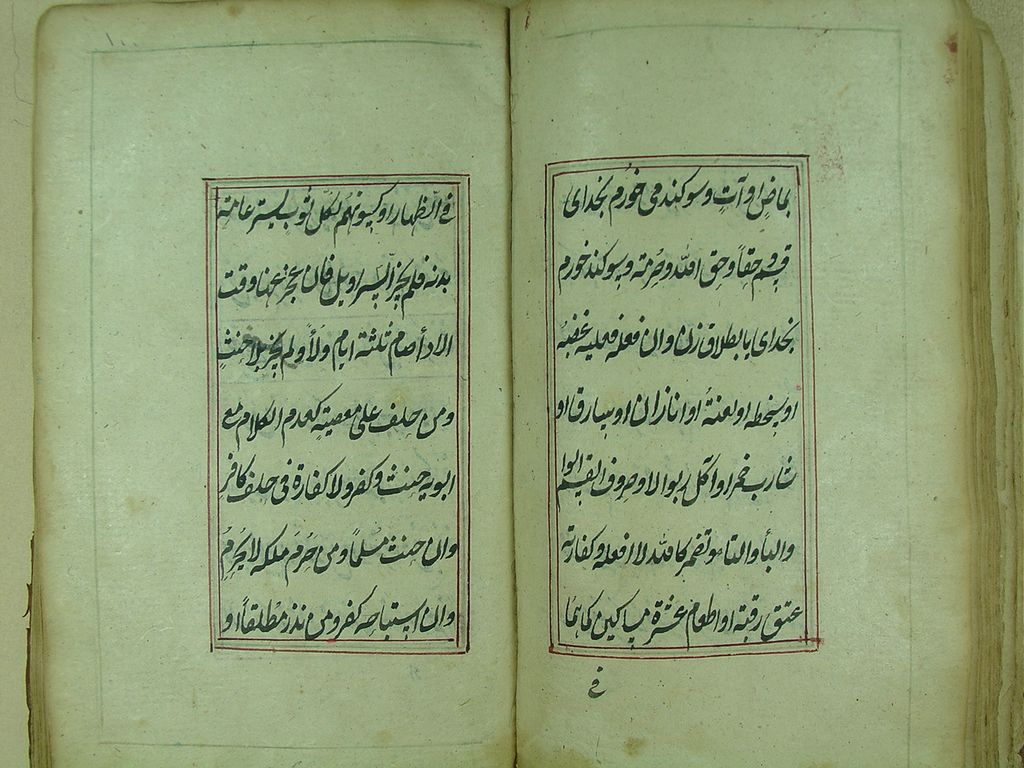 بماضٍ او آتٍ وسوكند مى خورم بخداى
قسم حقاً وحق الله وحرمته وسوكند خورم
بخداى يا بطلاق زن وان فعله فعليه غضبه
او سخطه او لعنة او انا زان او سارق او
شارب خمر او آكل ربوا لا وحروف القسم الواو
والبأ والتا وتضمر كالله لا افعله وكفارته
عتق رقبة او اطعام عشرة مساكين كما هما
فى
فى الظهار او كسوتهم لكل ثوب يستر عامة
بدنه فلم يجز السراويل فان عجز عنها وقت
الادأ صام ثلثة ايام ولأ ولم يجز بلا حنث
ومن حلف على معصية كعدم الكلام مع
ابويه حنث وكفر ولا كفارة فى حلف كافر
وان حنث مسلماً ومن حرم ملكه لا يحرم
وان استباحه كفر ومن نذر مطلقاً او